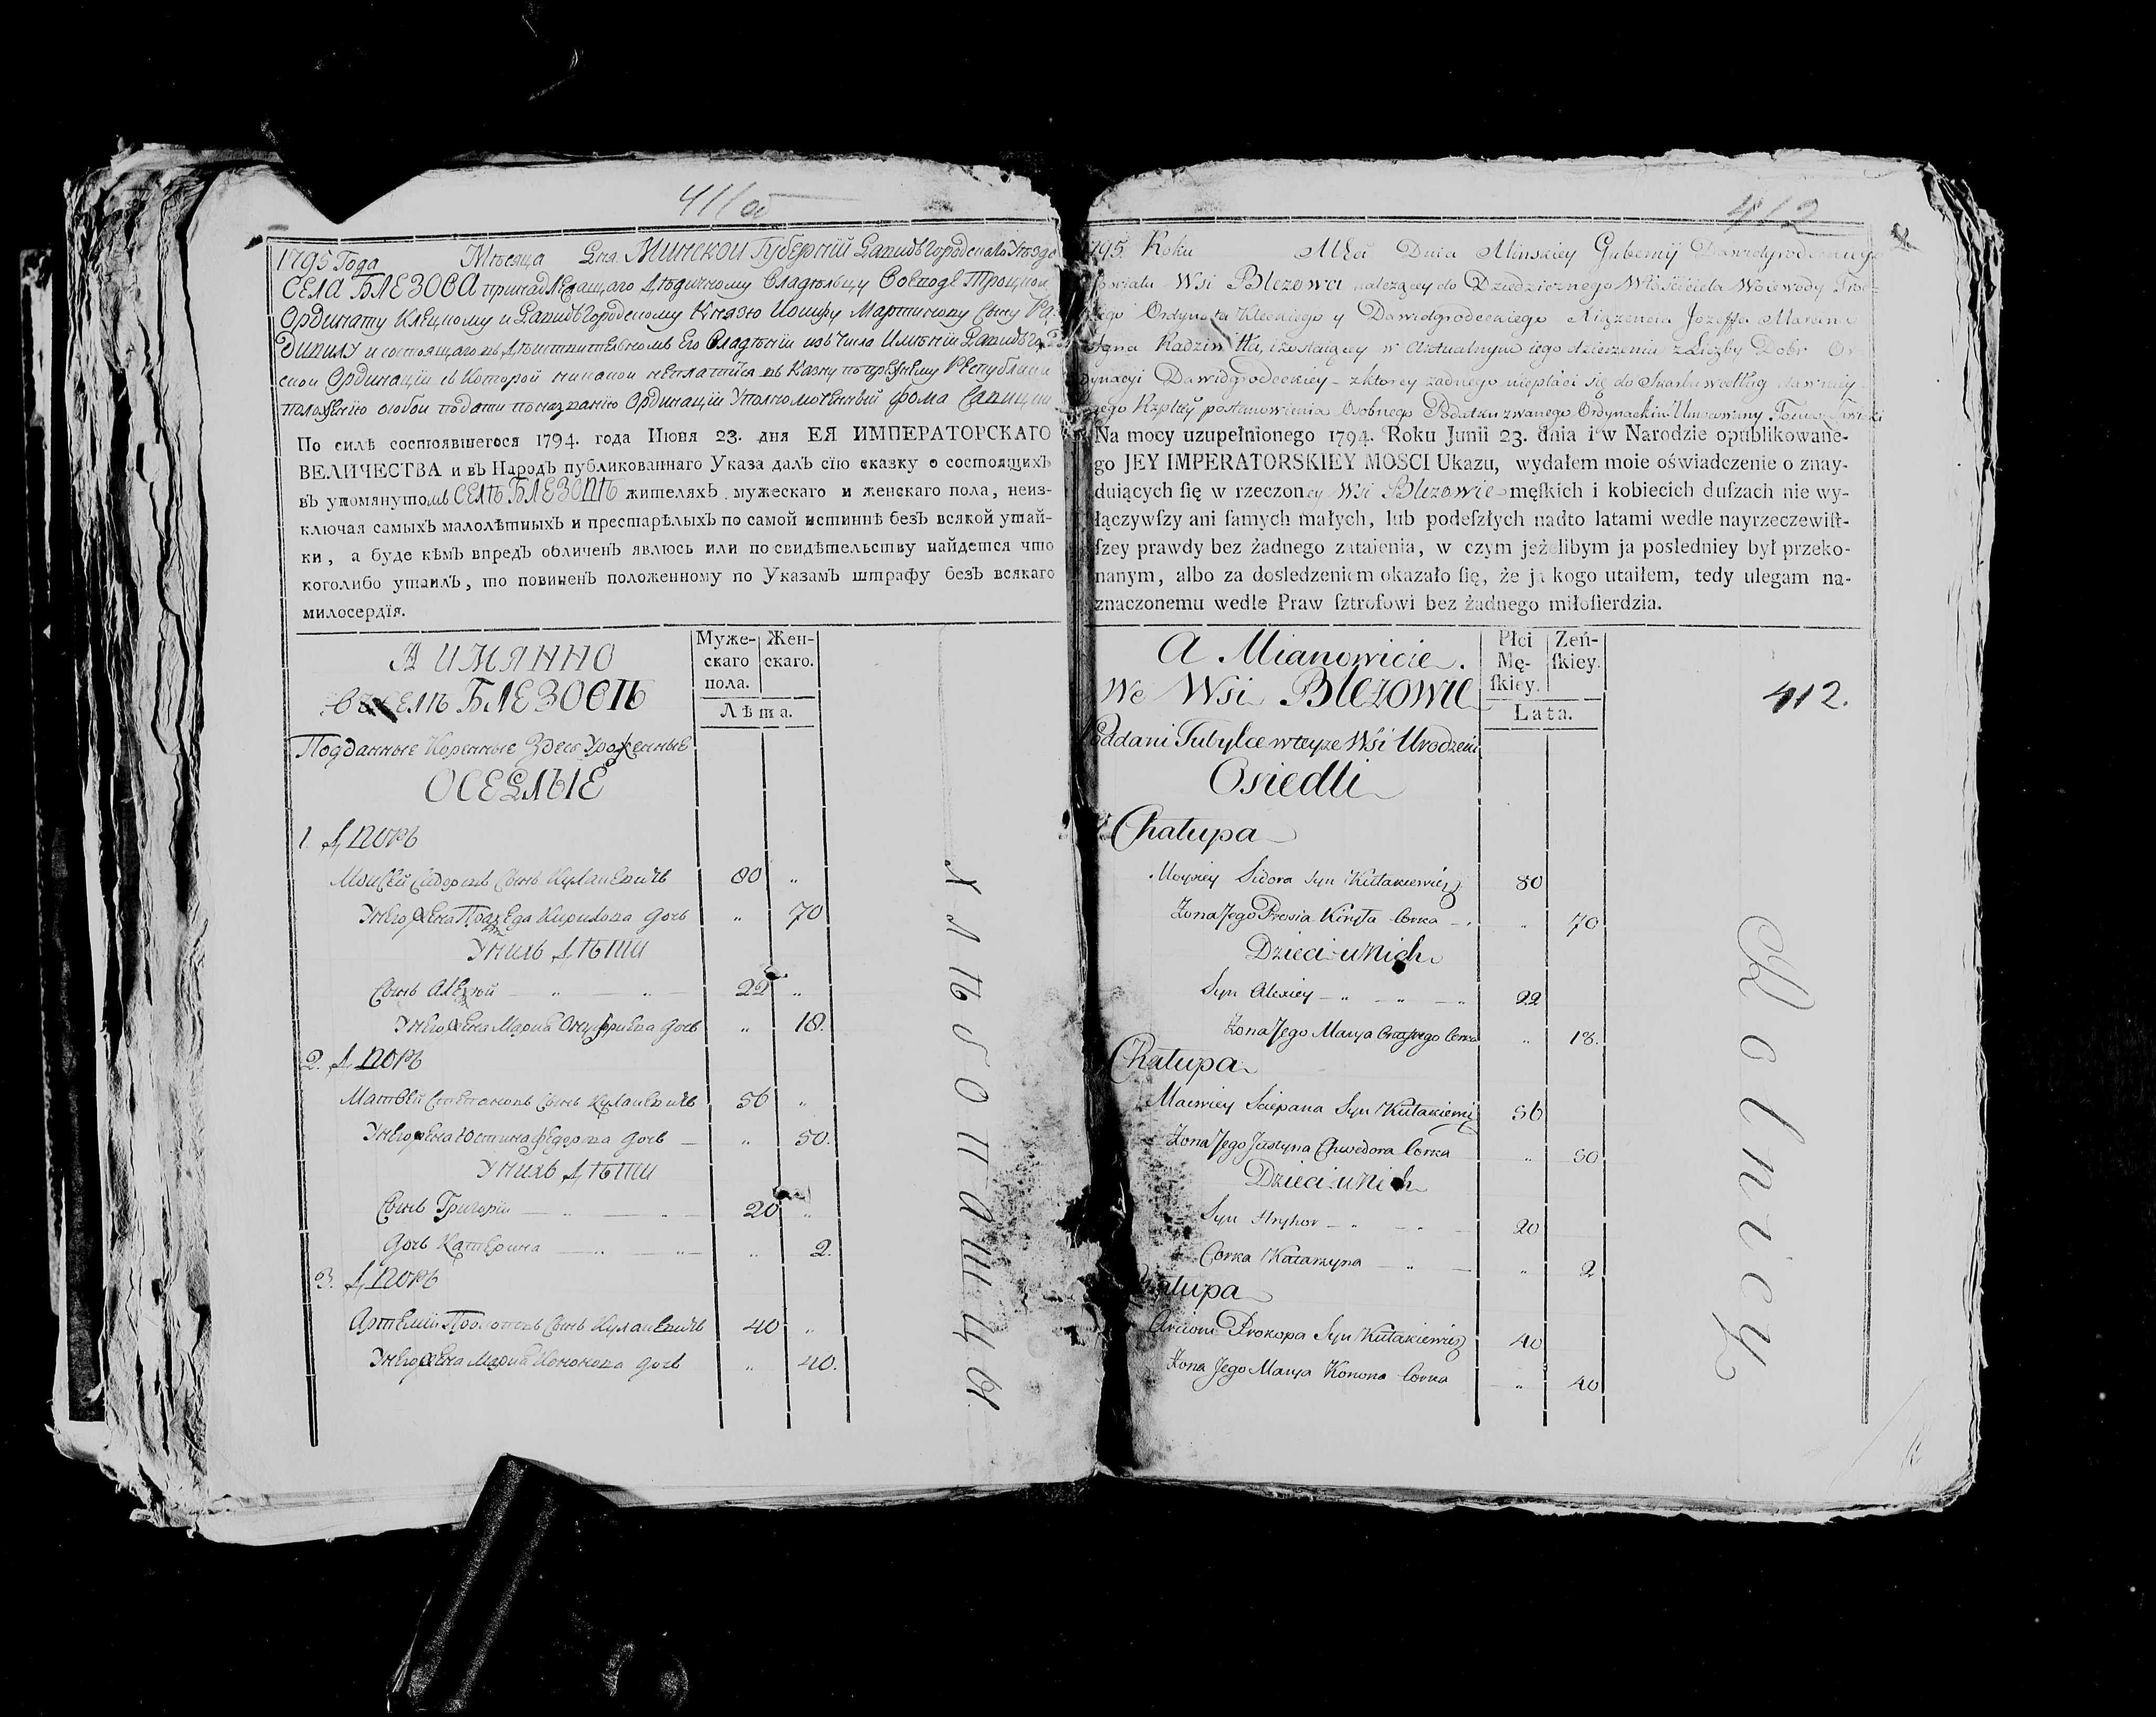 411об
1795 Года Мѣсяца Дня Минской Губерній Давидъгородскаго Уѣзда
СЕЛА БЛЕЗОВА принадлежащаго Дѣдичному Владѣльцу Воеводе Троцкому
Ординату Клецкому и Давидъгородскому Князю Іосифу Мартинову Сыну Ра-
дивилу и состоящаго въ Дѣиствительномъ Его Владѣніи изъ Числа Имѣніи Давидъго
ской Ординаціи съ Которой никакой неплатится въ Казну по прежнему Республики
положенію особои подати Ординаціи Уполномоченный Фома
По силѣ состоявшегося 1794. года Июня 23. дня ЕЯ ИМПЕРАТОРСКАГО
ВЕЛИЧЕСТВА и въ Народъ публикованнаго Указа далъ сїю сказку о состоящихъ
въ упомянутомъ СЕЛѢ БЛЕЗОВѢ жителяхъ мужескаго и женскаго пола, неиз-
ключая самыхъ малолѣтныхъ и престарѣлыхъ по самой истиннѣ безъ всякой утай-
ки, а буде кѣмъ впредъ обличенъ явлюсь или по свидѣтельству найдется что
коголибо утаилъ, то повиненъ положенному по Указамъ штрафу безъ всякаго
милосердїя.
А ИМЯННО
Въ СЕЛѢ БЛЕЗОВѢ
Муже-
скаго
пола.
Жен-
скаго.
Лѣта.
Подданные Коренные Здесь Урожденные
ОСЕДЛЫЕ
1. Дворъ
Моисей Сидоровъ Сынъ Кулакевичъ 80 „
Унего Жена Кирилова дочь „ 70
Унихъ Дѣти
Сынъ Алексѣй — „ — „ — 22 „
Унего Жена Мария Онуфриева дочь „ 18.
2. Дворъ
Матвей Степановъ Сынъ Кулакевичъ 56 „
Унего Жена Юстина Федорова дочь — „ 50.
Унихъ Дѣти
Сынъ Григорій — „ — „ — 20 „
Дочь Катерина — „ — „ — „ 2.
3. Дворъ
Артемій Прокоповъ Сынъ Кулакевичъ 40 „
Унего Жена Мария Кононова дочь „ 40.
Хлѣбопашцы
412
795. Roku Mca Dnia Minskiey Gubernij Dawidgrodeckiego
Powiatu Wsi Blezowa należącey do Dziedzicznego Właściciela Woiewody Troc-
kiego Ordynata Kleckiego y Dawidgrodeckiego Xiążencia Jozeffa Marcina
Syna Radziwiłła, i zostaiącey w Aktualnym iego dzierżeniu z Liczby Dobr Or
dynacyi Dawidgrodeckiey — z ktorey żadnego niepłaci się do Skarbu według dawniey
szego Rzpltey postanowienia Osobnego Podatku zwanego Umocowany Tomasz
Na mocy uzupełnionego 1794. Roku Junii 23. dnia i w Narodzie opublikowane-
go JEY IMPERATORSKIEY MOSCI Ukazu, wydałem moie oświadczenie o znay-
duiących ſię w rzeczoney Wsi Blezowie męſkich i kobiecich duſzach nie wy-
łączywſzy ani ſamych małych, lub podeſzłych nadto latami wedle nayrzeczewiſt-
ſzey prawdy bez żadnego zataienia, w czym jeżelibym ja posledniey był przeko-
nanym, albo za dosledzeniem okazało ſię, że ja kogo utaiłem, tedy ulegam na-
znaczonemu wedle Praw ſztrofowi bez żadnego miłoſierdzia.
A Mianowicie.
We Wsi Blezowie
Płci
Mę-
ſkiey.
Zeń-
ſkiey.
Lata.
412.
Poddani Tubylce w teyze Wsi Urodzeni
Osiedli
Chałupa
Moysiey Sidora Syn Kułakiewicz 80
Zona Jego Kiryła Corka — „ „ 70
Dzieci u Nich
Syn Alexiey — „ — „ — „ 22
Zona Jego Marya Corka „ 18.
Chałupa
Maciwiey Sciepana Syn Kułakiewicz 56
Zona Jego Justyna Chwedora Corka „ 50
Dzieci u Nich
Syn Hryhor — „ — „ — 20
Corka Katarzyna — „ — „ 2
Chałupa
Arciom Prokopa Syn Kułakiewicz 40
Zona Jego Marya Konona Corka — „ 40
Rolnicy